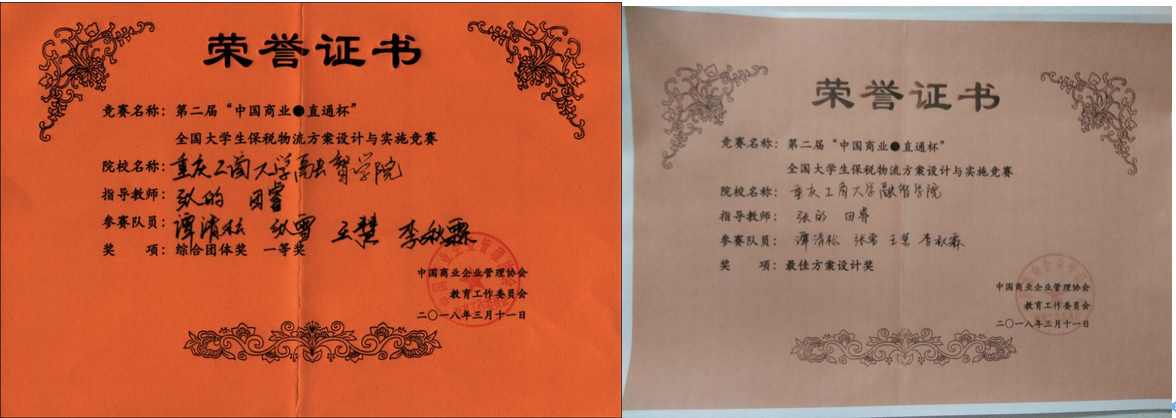 荣誉证书
竞赛名称：第二届“中国商业●直通杯”
全国大学生保税物流方案设计与实施竞赛
院校名称：重庆工商大学融智学院
指导教师：张的 田睿
参赛队员：谭清松 张雪 王慧 李秋霖
奖 项：综合团体奖 一等奖
中国商业企业管理协会
教育工作委员会
二〇一八年三月十一日
荣誉证书
竞赛名称：第二届“中国商业●直通杯”
全国大学生保税物流方案设计与实施竞赛
院校名称：重庆工商大学融智学院
指导教师：张的 田睿
参赛队员：谭清松 张雪 王慧 李秋霖
奖 项：最佳方案设计奖
中国商业企业管理协会
教育工作委员会
二〇一八年三月十一日